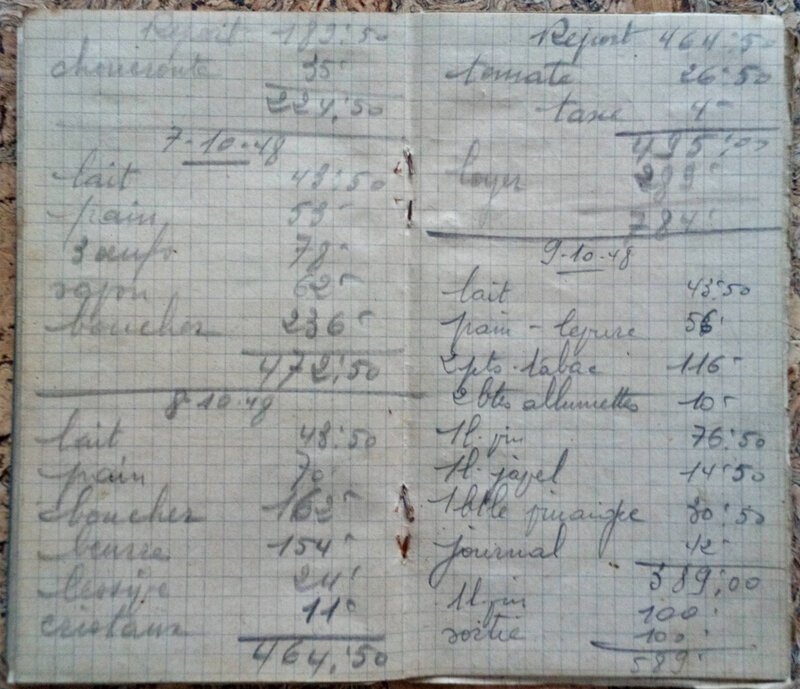 Report 189:50
choucroute 35-
224:50
7-10-48
lait 43:50
pain 53-
3 œufs 78-
savon 62-
boucher 236-
472:50
8-10-48
lait 43:50
pain 70-
boucher 162-
beurre 154-
lessive 24-
cristaux 11-
464:50
Report 464:50
tomate 26:50
taxe 4-
495:00
loyer 289-
784-
9-10-48
lait 43:50
pain - levure 56
2 pts. tabac 116-
2 btes allumettes 10-
1l. vin 76:50
1l. javel 14:50
1 btle vinaigre 30:50
journal 42-
389:00
1l. vin 100-
sortie 100-
589-